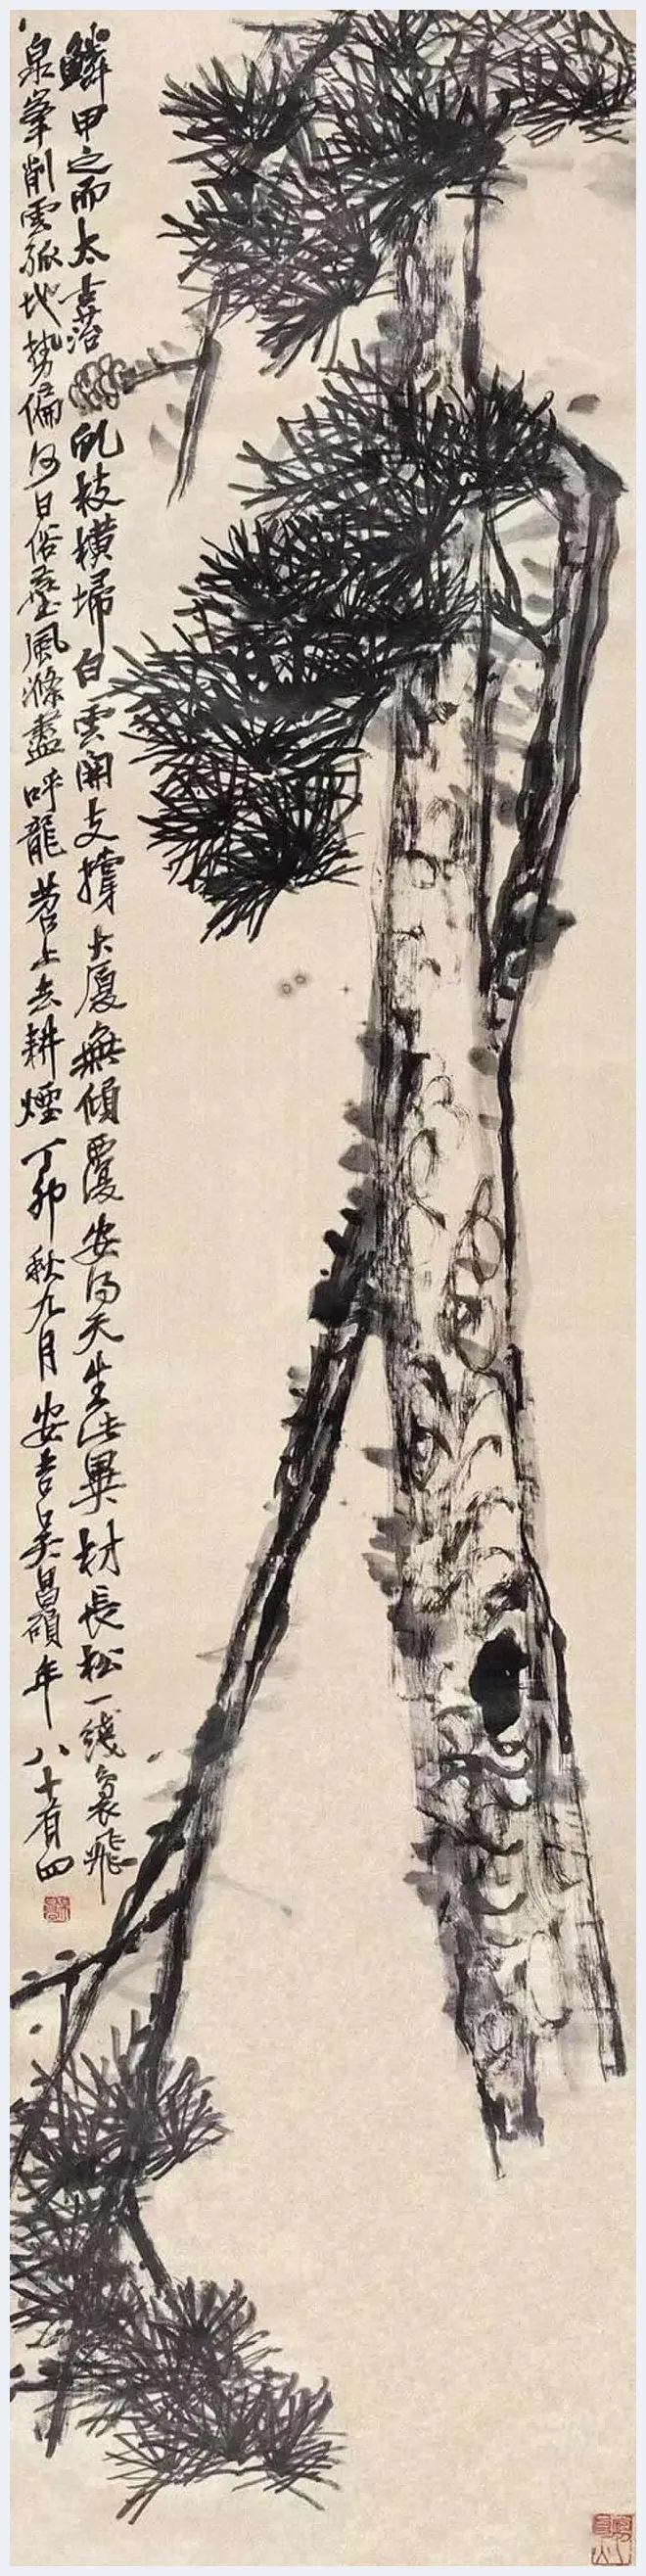 鱗甲之而太古菭虬枝橫埽白雲開支撐大廈無傾覆安得天生此異材長松一線裊飛
泉峯削雲孤地勢偏何日俗塵風滌盡呼龍苕上去耕煙丁卯秋九月安吉吳昌碩年八十有四